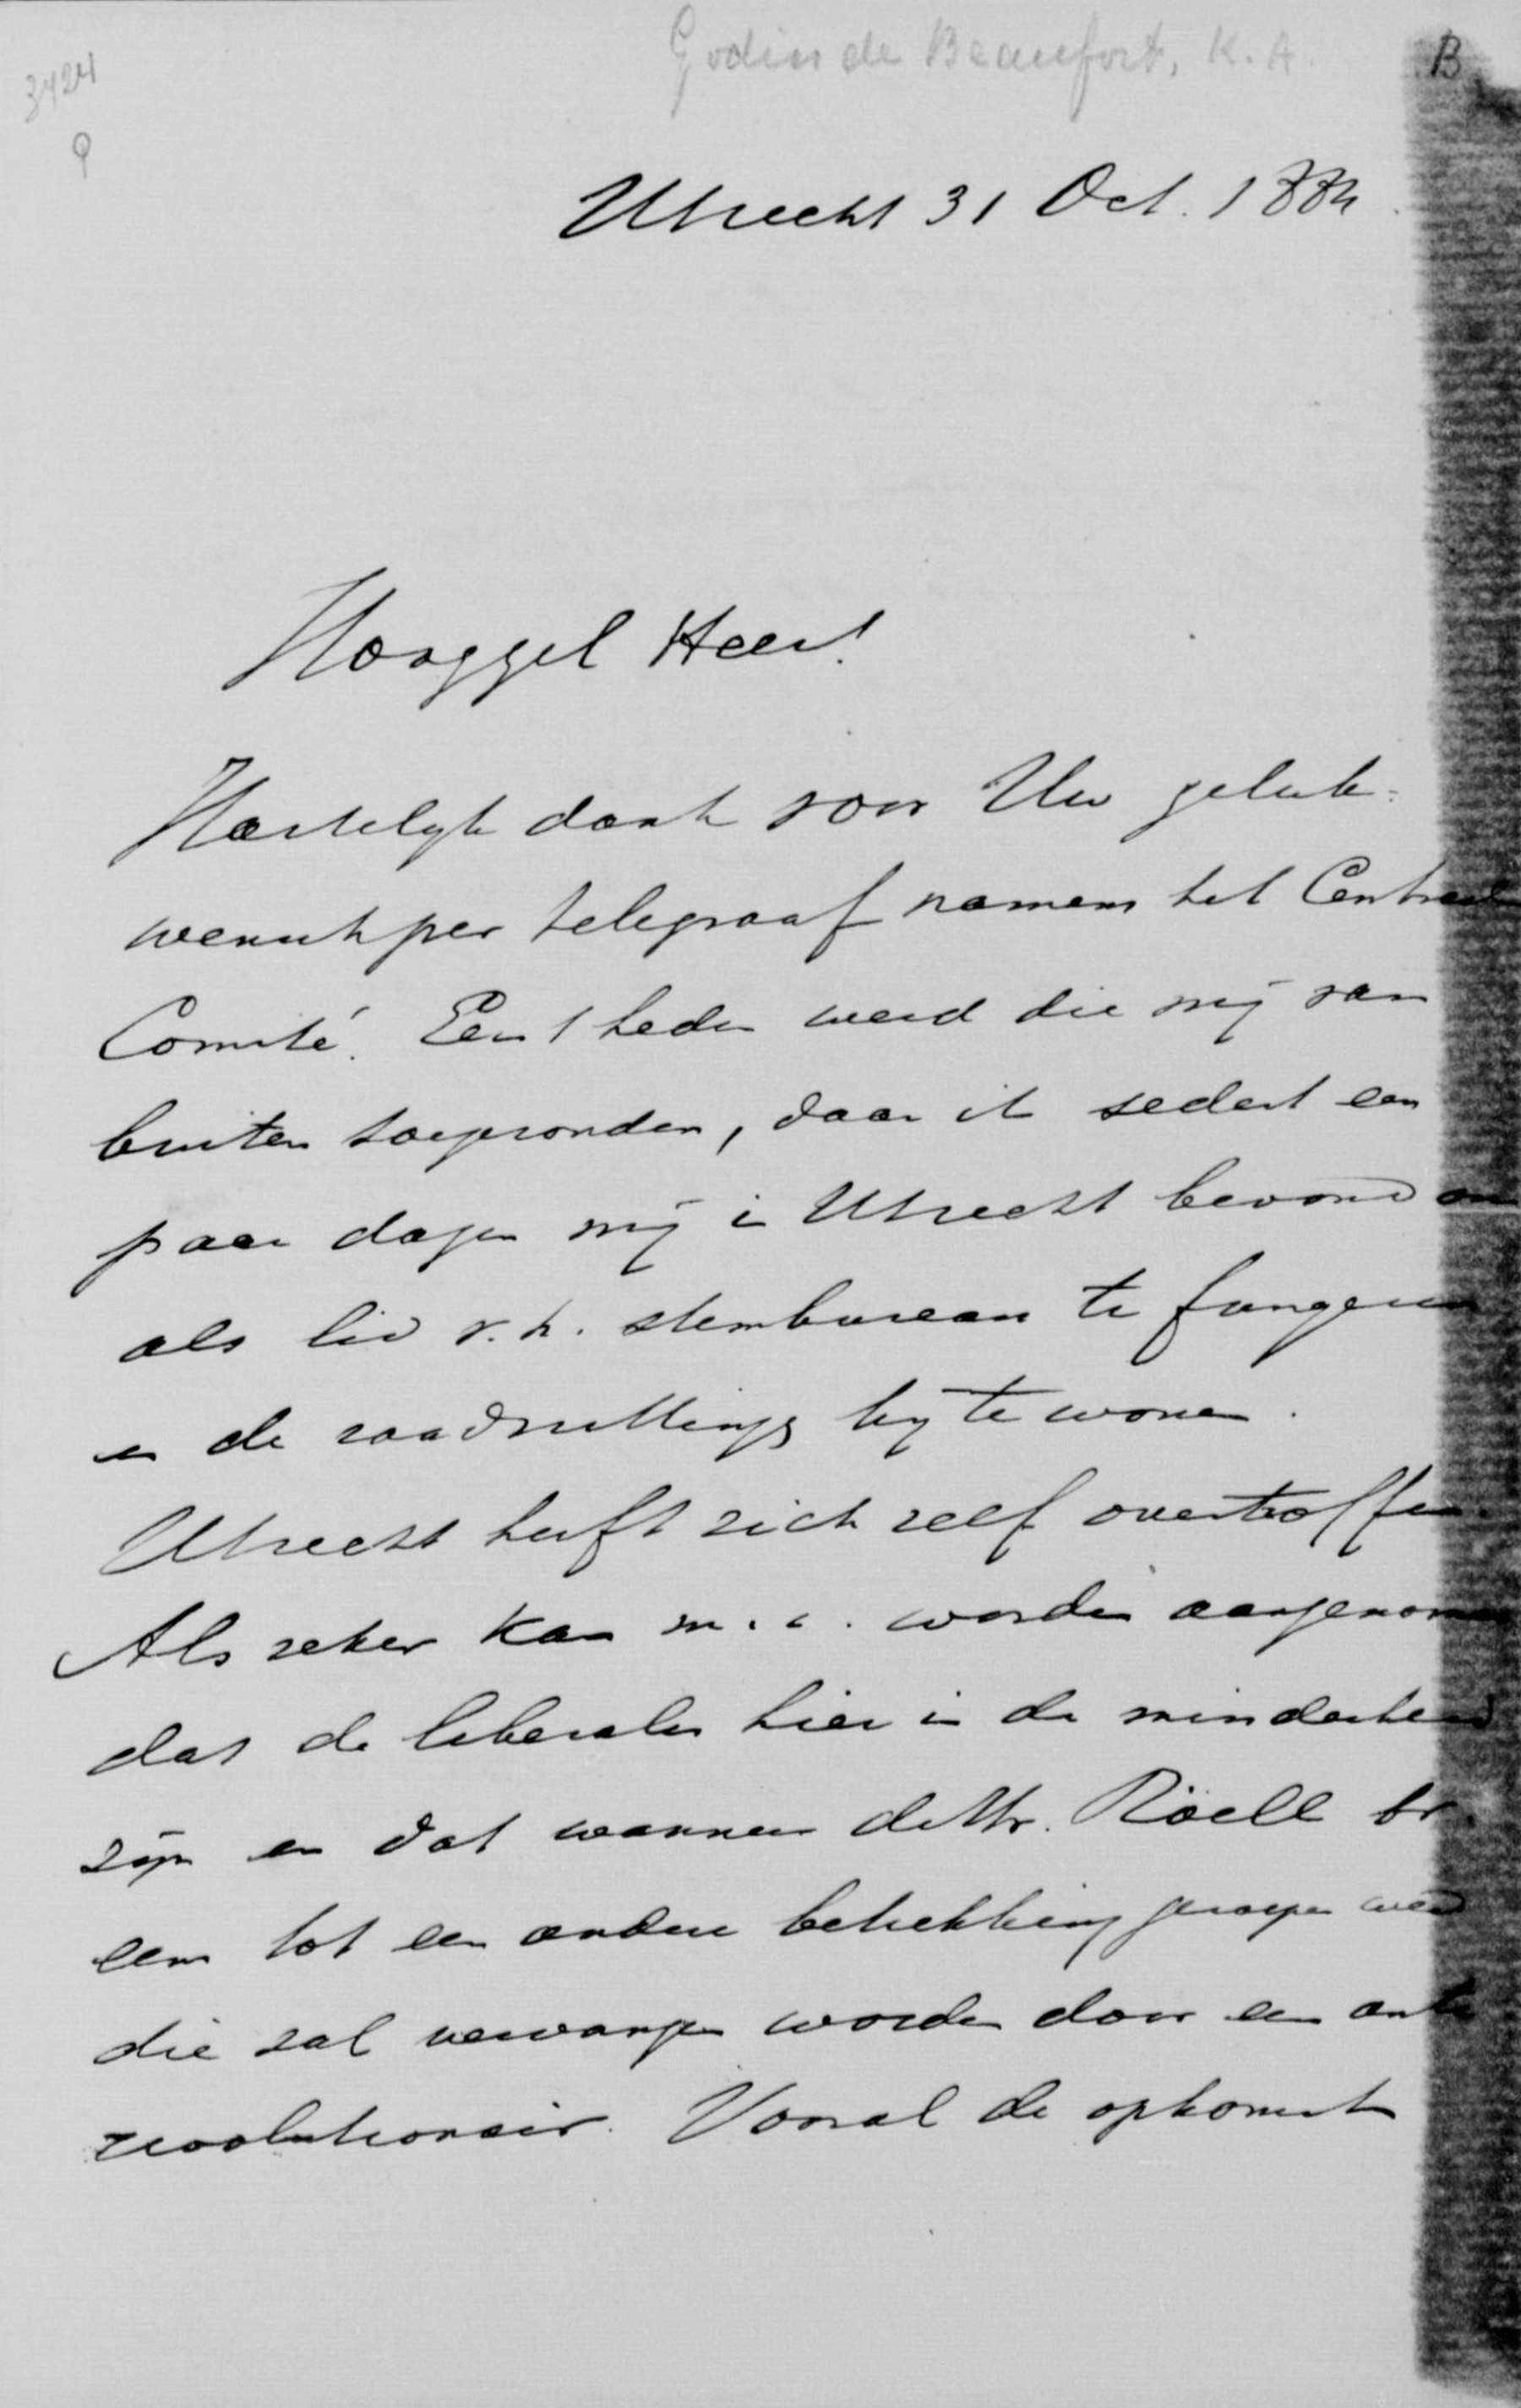 Godin de Beaufort, K. A.
B
3424
Utrecht 31 Oct. 1884
Hooggel Heer!
Hartelijk dank voor Uw geluk-
wensch per telegraaf namens het Centraal
Comité. Eerst heden werd die mij van
buiten toegezonden, daar ik sedert een
paar dagen mij in Utrecht bevond om
als lid v. h. stembureau te fungeeren
en de raadszittings bij te wonen.
Utrecht heeft zich zelf overtroffen.
Als zeker kan m. i. worden aangenomen
dat de liberalen hier in de minderheid
zijn en dat wanneer de Hr. Röell
eens tot een andere betrekking geroepen werd
die zal vervangen worden door een anti
revolutionair. Vooral de opkomst